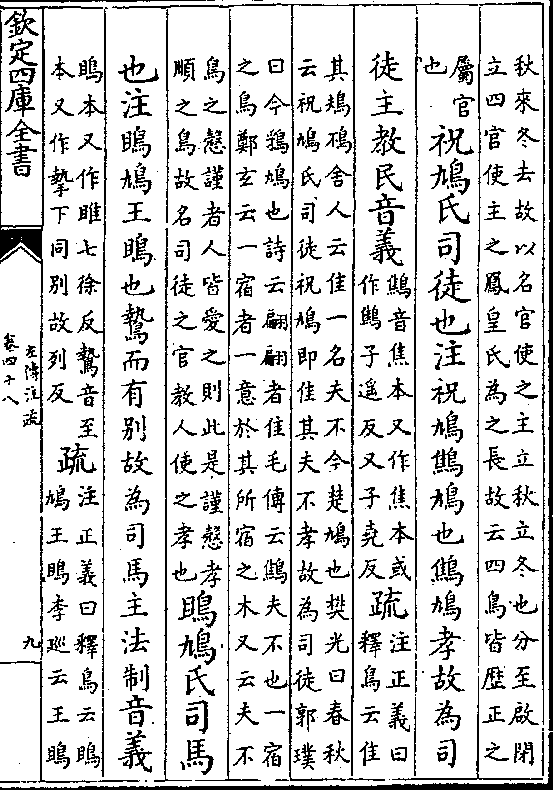 秋來冬去故以名官使之主立秋立冬也分至啟閉
立四官使主之鳳皇氏為之長故云四鳥皆歷正之
屬官
也
祝鳩氏司徒也注祝鳩鷦鳩也鷦鳩孝故為司
徒主教民音義
鷦音焦本又作焦本或
作鷦子遥反又子堯反
疏
注正義曰
釋鳥云隹
其鳺鴀舍人云隹一名夫不今楚鳩也樊光曰春秋
云祝鳩氏司徒祝鳩即隹其夫不孝故為司徒郭璞
曰今鵓鳩也詩云翩翩者隹毛傳云鵻夫不也一宿
之鳥鄭玄云一宿者一意於其所宿之木又云夫不
鳥之慤謹者人皆愛之則此是謹慤孝
順之鳥故名司徒之官教人使之孝也
鴡鳩氏司馬
也注鴡鳩王鴡也鷙而有別故為司馬主法制音義
鴡本又作雎七徐反鷙音至
本又作摯下同別故列反
疏
注正義曰釋鳥云鴡
鳩王鴡李廵云王鴡
欽定四庫全書
左傳注疏
卷四十八
九